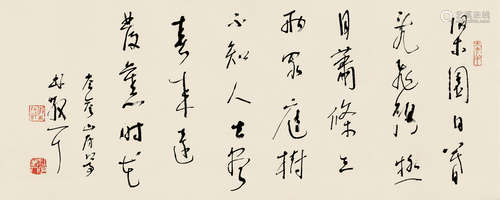 梁園日暮
亂飛鴉極
目蕭條三
兩家庭樹
不知人去盡
春來還
發舊時花
岑參山房
林散耳